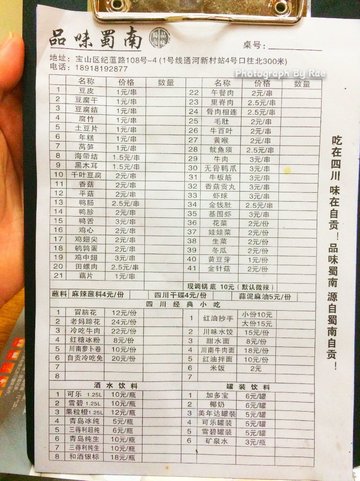 品味蜀南
桌号:
地址: 宝山区纪蕰路108号-4 (1号线通河新村站4号口往北300米)
电话: 18918192877
Photograph by Rae
名称 价格 数量 名称 价格 数量
1 豆皮 1元/串 22 午餐肉 2元/串
2 豆腐干 1元/串 23 里脊肉 2.5元/串
3 豆腐结 1元/串 24 骨肉相连 2.5元/串
4 腐竹 1元/串 25 毛肚 2元/串
5 土豆片 1元/串 26 牛百叶 2元/串
6 年糕 1元/串 27 黄喉 2元/串
7 莴笋 1元/串 28 鱿鱼须 2.5元/串
8 海带结 1.5元/串 29 牛肉 3元/串
9 黑木耳 1.5元/串 30 无骨鸭爪 3元/串
10 千叶豆腐 2元/串 31 牛板筋 3元/串
11 香菇 2元/串 32 香菇贡丸 3元/串
12 平菇 2元/串 33 虾球 3元/串
13 鸭肠 2.5元/串 34 金钱肚 2.5元/串
14 鸭胗 2元/串 35 基围虾 3元/串
15 鸭舌 3元/串 36 花菜 2元/串
16 鸡心 2元/串 37 娃娃菜 2元/串
17 鸡翅尖 2元/串 38 生菜 2元/串
18 鹌鹑蛋 2元/串 39 冬瓜 2元/串
19 鸡中翅 3元/串 40 黄豆芽 2元/串
20 田螺肉 2.5元/串 41 金针菇 2元/串
21 藕片 1元/串
现调锅底 10元 (默认微辣)
蘸料 麻辣蘸料4元/份 四川干碟4元/份 蒜泥麻油5元/份
四川经典小吃
1 冒脑花 12元/份 1 红油抄手 小份10元
2 老妈甜花 24元/份 大份15元
3 冷吃牛肉 22元/份 2 川味水饺 15元/份
4 红糖冰粉 8元/份 3 甜水面 8元/份
5 川南萝卜卷 10元/份 4 四川牛肉面 18元/份
6 自贡冷吃兔 20元/份 5 红油拌面 10元/份
7 6 米饭 2元
8
酒水饮料 罐装饮料
1 可乐 1.25L 10元/瓶 1 加多宝 6元/罐
2 雪碧 1.25L 10元/瓶 2 椰奶 6元/罐
3 果粒橙1.25L 13元/瓶 3 美年达罐装 5元/罐
4 青岛冰纯 5元/瓶 4 可乐罐装 5元/罐
5 三得利超纯 5元/瓶 5 雪碧罐装 5元/罐
6 青岛纯生 10元/瓶 6 矿泉水 3元/瓶
7 三得利纯生 10元/瓶
8 和酒银标 18元/瓶
吃在四川 味在自贡! 品味蜀南 源自蜀南自贡!